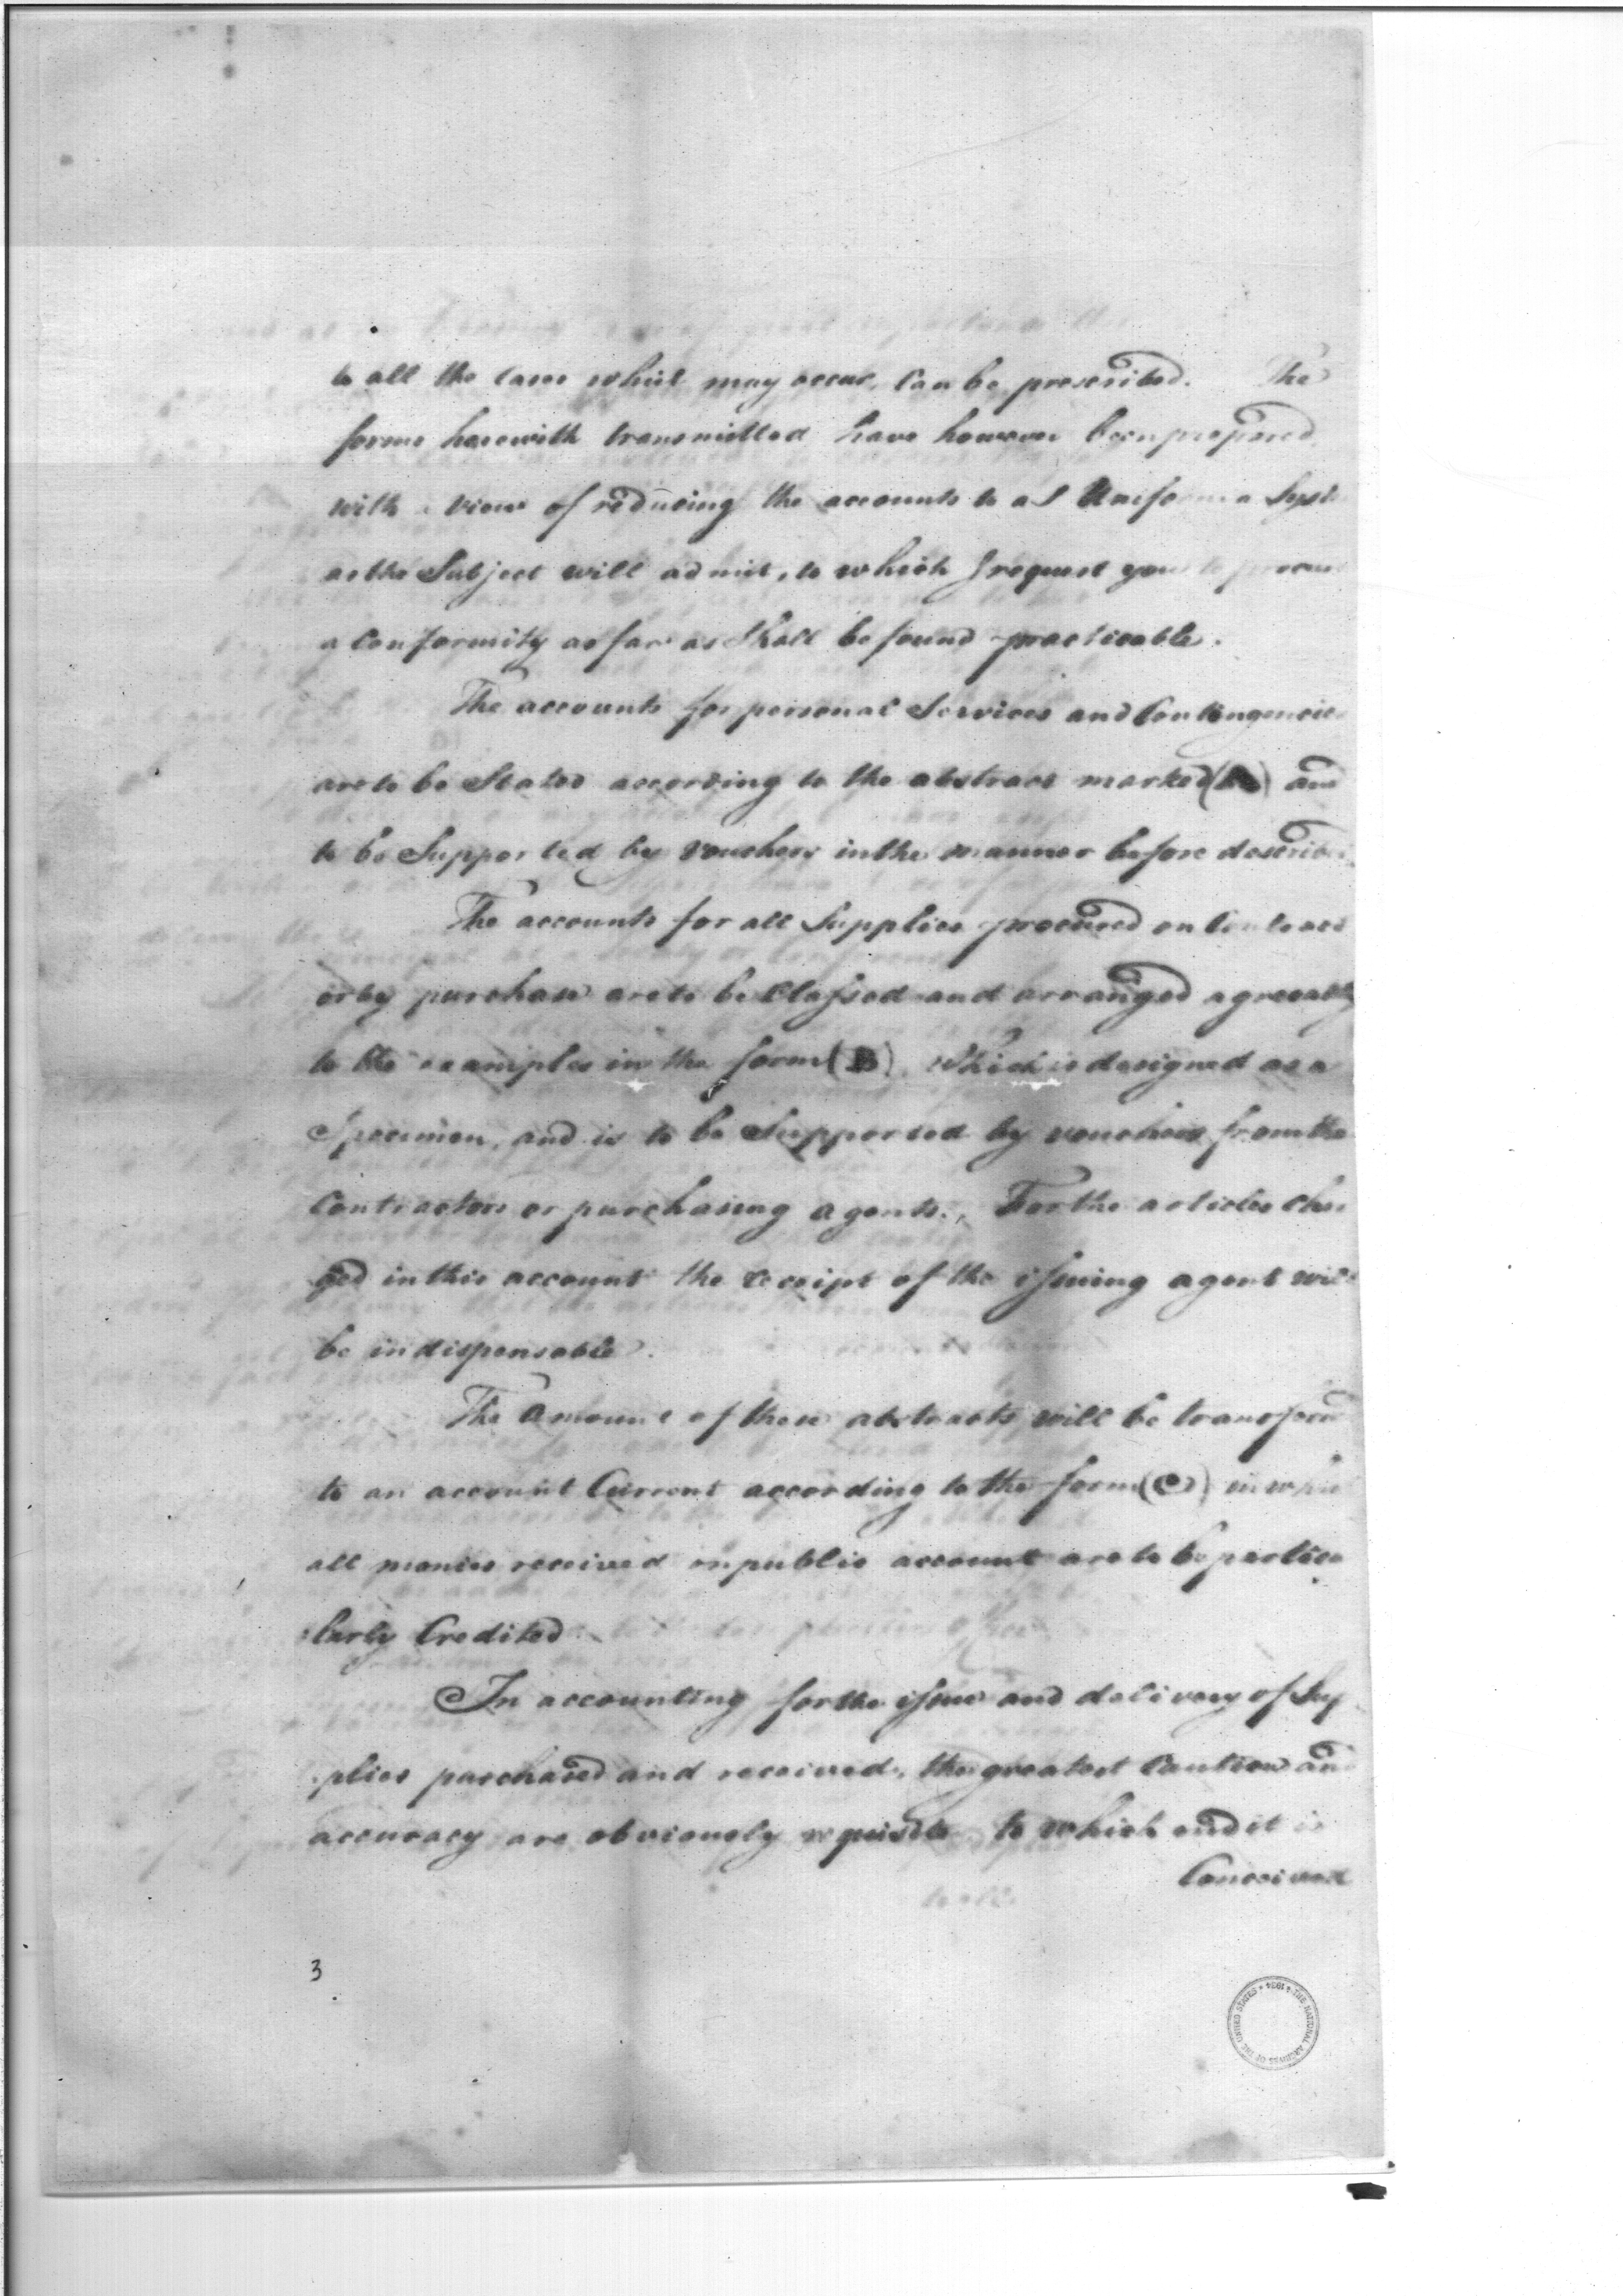 to all the cases which may occur, Can be prescribed. The
forms herewith transmitted have however been prepared
with a view of reducing the accounts to as Uniform a Syst
as the Subject will admit, to which I request you to procure
a Conformity as far as Shall be found practicable.
The accounts for personal Services and Contingencies
are to be Stated according to the abstract marked (A) and
to be Supported by Vouchers in the manner before describ
The accounts for all Supplies procured on Contract
or by purchase are to be Classed and arranged agreeably
to the examples in the form (B). Which is designed as a
Specimen, and is to be Supported by vouchers from the
Contractors or purchasing agents. For the articles char
ged in this account the receipt of the issuing agent will
be indispensable.
The Amount of these abstracts will be transferred
to an account Current according to the form (C) in which
all monies received on public account are to be particu
:larly Credited.
In accounting for the issue and delivery of Sup
:plies purchased and received, the greatest Caution and
accuracy are obviously requisite to which end it is
Conceived
3
THE NATIONAL ARCHIVES OF THE UNITED STATES 1934